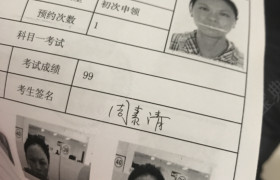 初次申领
预约次数 1
科目一考试
考试成绩 99
考生签名 周素清